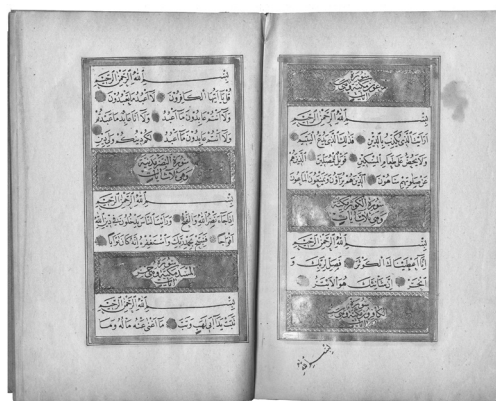 سورة
بسم الله الرحمن الرحيم
ارايت الذي يكذب بالدين فذلك الذي يدع اليتيم
ولا يحض على طعام المسكين فويل للمصلين الذين هم
عن صلاتهم ساهون الذين هم يراؤن ويمنعون الماعون
سورة الكوثر مكية
وهي ثلاث آيات
بسم الله الرحمن الرحيم
انا اعطيناك الكوثر فصل لربك و
انحر ان شانئك هو الابتر
سورة
الكافرون مكية وهي ست
بسم الله الرحمن الرحيم
قل يا ايها الكافرون لا اعبد ما تعبدون
ولا انتم عابدون ما اعبد ولا انا عابد ما عبدتم
ولا انتم عابدون ما اعبد لكم دينكم ولي دين
سورة النصر مدنية
وهي ثلاث آيات
بسم الله الرحمن الرحيم
اذا جاء نصر الله والفتح ورايت الناس يدخلون في دين الله
افواجا فسبح بحمد ربك واستغفره انه كان توابا
سورة
المسد مكية وهي خمس
آيات
بسم الله الرحمن الرحيم
تبت يدا ابي لهب وتب ما اغنى عنه ماله وما